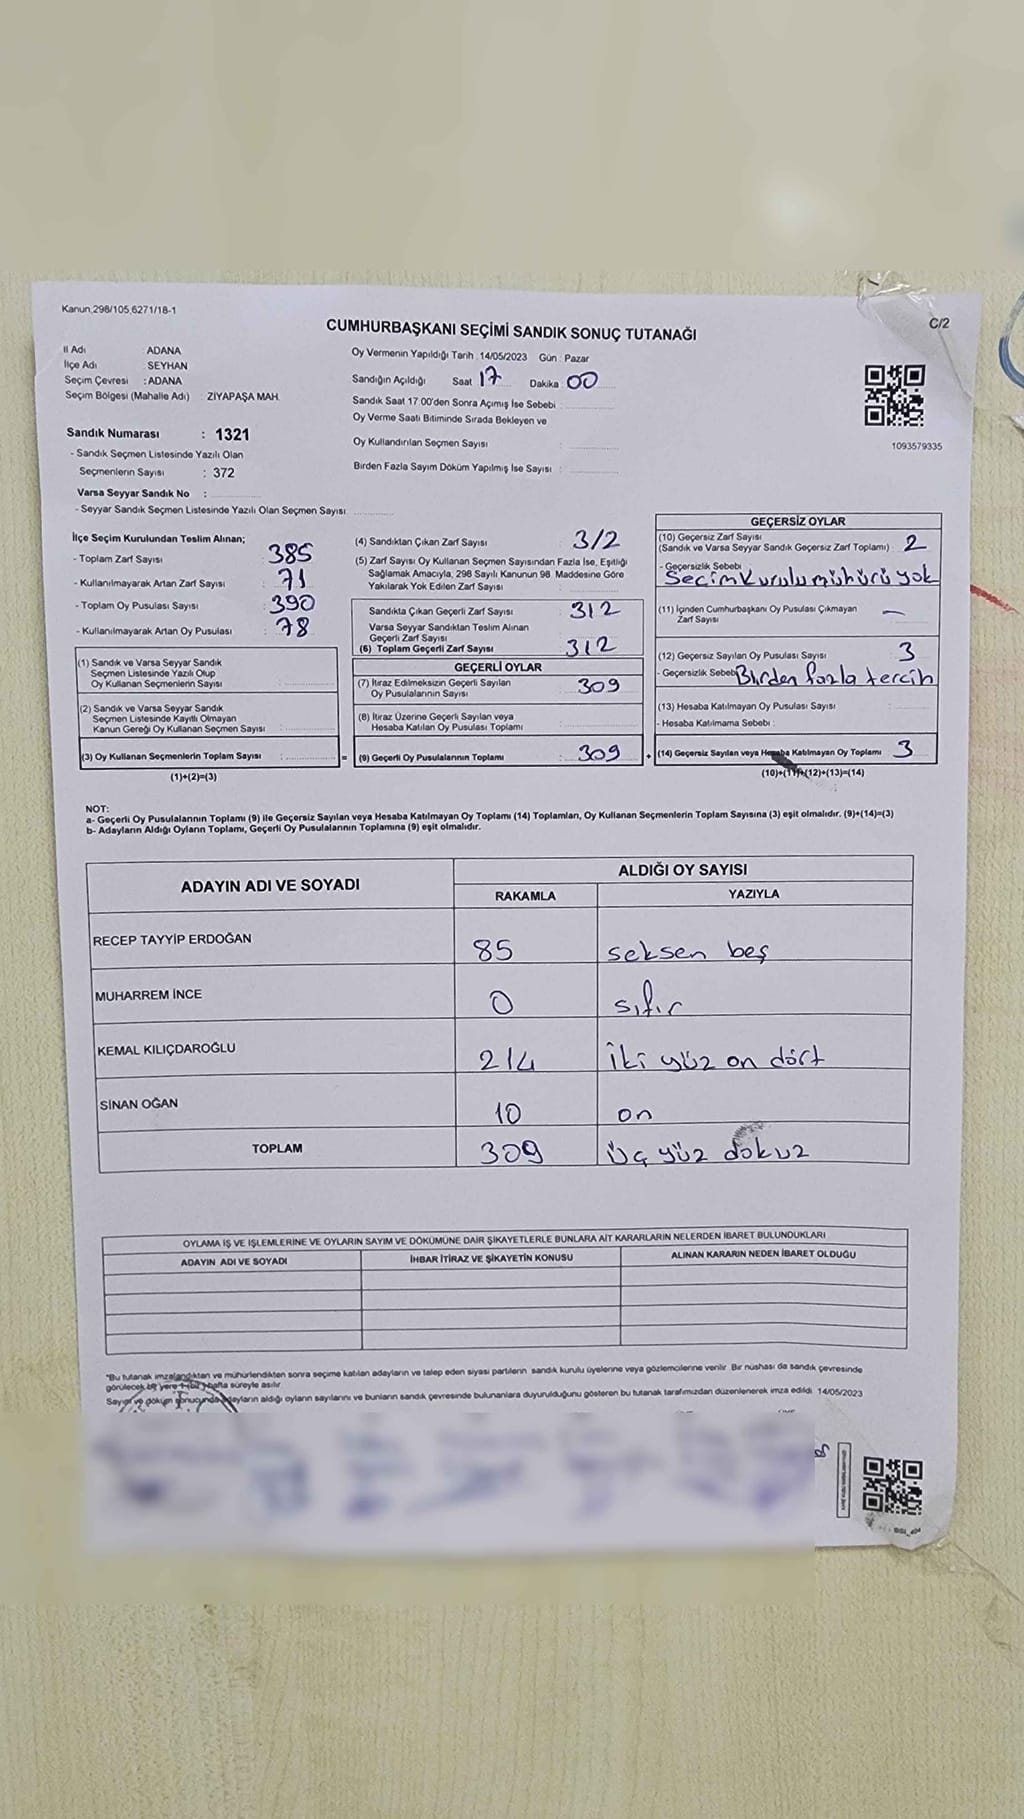 Kanun;298/105,6271/18-1
CUMHURBAŞKANI SEÇİMİ SANDIK SONUÇ TUTANAĞI
C/2
İl Adı : ADANA
İlçe Adı : SEYHAN
Seçim Çevresi : ADANA
Seçim Bölgesi (Mahalle Adı) : ZİYAPAŞA MAH.
Sandık Numarası : 1321
- Sandık Seçmen Listesinde Yazılı Olan
Seçmenlerin Sayısı : 372
Varsa Seyyar Sandık No :
- Seyyar Sandık Seçmen Listesinde Yazılı Olan Seçmen Sayısı
Oy Vermenin Yapıldığı Tarih : 14/05/2023 Gün : Pazar
Sandığın Açıldığı Saat 17 Dakika : 00
Sandık Saat 17.00'den Sonra Açımış İse Sebebi :
Oy Verme Saati Bitiminde Sırada Bekleyen ve
Oy Kullandırılan Seçmen Sayısı :
Birden Fazla Sayım Döküm Yapılmış İse Sayısı :
1093579335
İlçe Seçim Kurulundan Teslim Alınan;
- Toplam Zarf Sayısı : 385
- Kullanılmayarak Artan Zarf Sayısı : 71
- Toplam Oy Pusulası Sayısı : 390
- Kullanılmayarak Artan Oy Pusulası : 78
(1) Sandık ve Varsa Seyyar Sandık
Seçmen Listesinde Yazılı Olup
Oy Kullanan Seçmenlerin Sayısı :
(2) Sandık ve Varsa Seyyar Sandık
Seçmen Listesinde Kayıtlı Olmayan
Kanun Gereği Oy Kullanan Seçmen Sayısı :
(3) Oy Kullanan Seçmenlerin Toplam Sayısı :
(1)+(2)=(3)
(4) Sandıktan Çıkan Zarf Sayısı : 312
(5) Zarf Sayısı Oy Kullanan Seçmen Sayısından Fazla İse, Eşitliği
Sağlamak Amacıyla, 298 Sayılı Kanunun 98. Maddesine Göre
Yakılarak Yok Edilen Zarf Sayısı
Sandıkta Çıkan Geçerli Zarf Sayısı 312
Varsa Seyyar Sandıktan Teslim Alınan
Geçerli Zarf Sayısı
(6) Toplam Geçerli Zarf Sayısı 312
GEÇERLİ OYLAR
(7) İtiraz Edilmeksizin Geçerli Sayılan
Oy Pusulalarının Sayısı : 309
(8) İtiraz Üzerine Geçerli Sayılan veya
Hesaba Katılan Oy Pusulası Toplamı :
= (9) Geçerli Oy Pusulalarının Toplamı : 309 +
GEÇERSİZ OYLAR
(10) Geçersiz Zarf Sayısı
(Sandık ve Varsa Seyyar Sandık Geçersiz Zarf Toplamı) : 2
- Geçersizlik Sebebi
Seçim kurulu mühürü yok
(11) İçinden Cumhurbaşkanı Oy Pusulası Çıkmayan
Zarf Sayısı : –
(12) Geçersiz Sayılan Oy Pusulası Sayısı : 3
- Geçersizlik Sebebi Birden fazla tercih
(13) Hesaba Katılmayan Oy Pusulası Sayısı :
- Hesaba Katılmama Sebebi :
(14) Geçersiz Sayılan veya Hesaba Katılmayan Oy Toplamı : 3
(10)+(11)+(12)+(13)=(14)
NOT:
a- Geçerli Oy Pusulalarının Toplamı (9) ile Geçersiz Sayılan veya Hesaba Katılmayan Oy Toplamı (14) Toplamları, Oy Kullanan Seçmenlerin Toplam Sayısına (3) eşit olmalıdır. (9)+(14)=(3)
b- Adayların Aldığı Oyların Toplamı, Geçerli Oy Pusulalarının Toplamına (9) eşit olmalıdır.
ADAYIN ADI VE SOYADI
ALDIĞI OY SAYISI
RAKAMLA YAZIYLA
RECEP TAYYİP ERDOĞAN 85 seksen beş
MUHARREM İNCE 0 sıfır
KEMAL KILIÇDAROĞLU 214 İki yüz on dört
SİNAN OĞAN 10 on
TOPLAM 309 Üç yüz dokuz
OYLAMA İŞ VE İŞLEMLERİNE VE OYLARIN SAYIM VE DÖKÜMÜNE DAİR ŞİKAYETLERLE BUNLARA AİT KARARLARIN NELERDEN İBARET BULUNDUKLARI
ADAYIN ADI VE SOYADI İHBAR İTİRAZ VE ŞİKAYETİN KONUSU ALINAN KARARIN NEDEN İBARET OLDUĞU
*Bu tutanak imzalandıktan ve mühürlendikten sonra seçime katılan adayların ve talep eden siyasi partilerin sandık kurulu üyelerine veya gözlemcilerine verilir. Bir nüshası da sandık çevresinde
görülecek bir yere 1 (bir) hafta süreyle asılır.
Sayım ve döküm sonucunda adayların aldığı oyların sayılarını ve bunların sandık çevresinde bulunanlara duyurulduğunu gösteren bu tutanak tarafımızdan düzenlenerek imza edildi. 14/05/2023